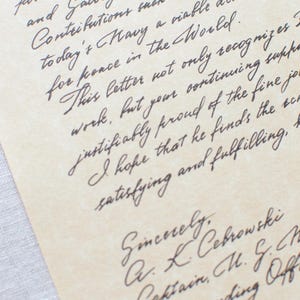 and
Contributions such
today's Navy a viable
for peace in the World.
This letter not only recognizes
work, but your continuing supp
justifiably proud of the fine jo
I hope that he finds the
satisfying and fulfilling,
Sincerely,
A. K. Cebrowski
Captain, U. S. N
ding Off